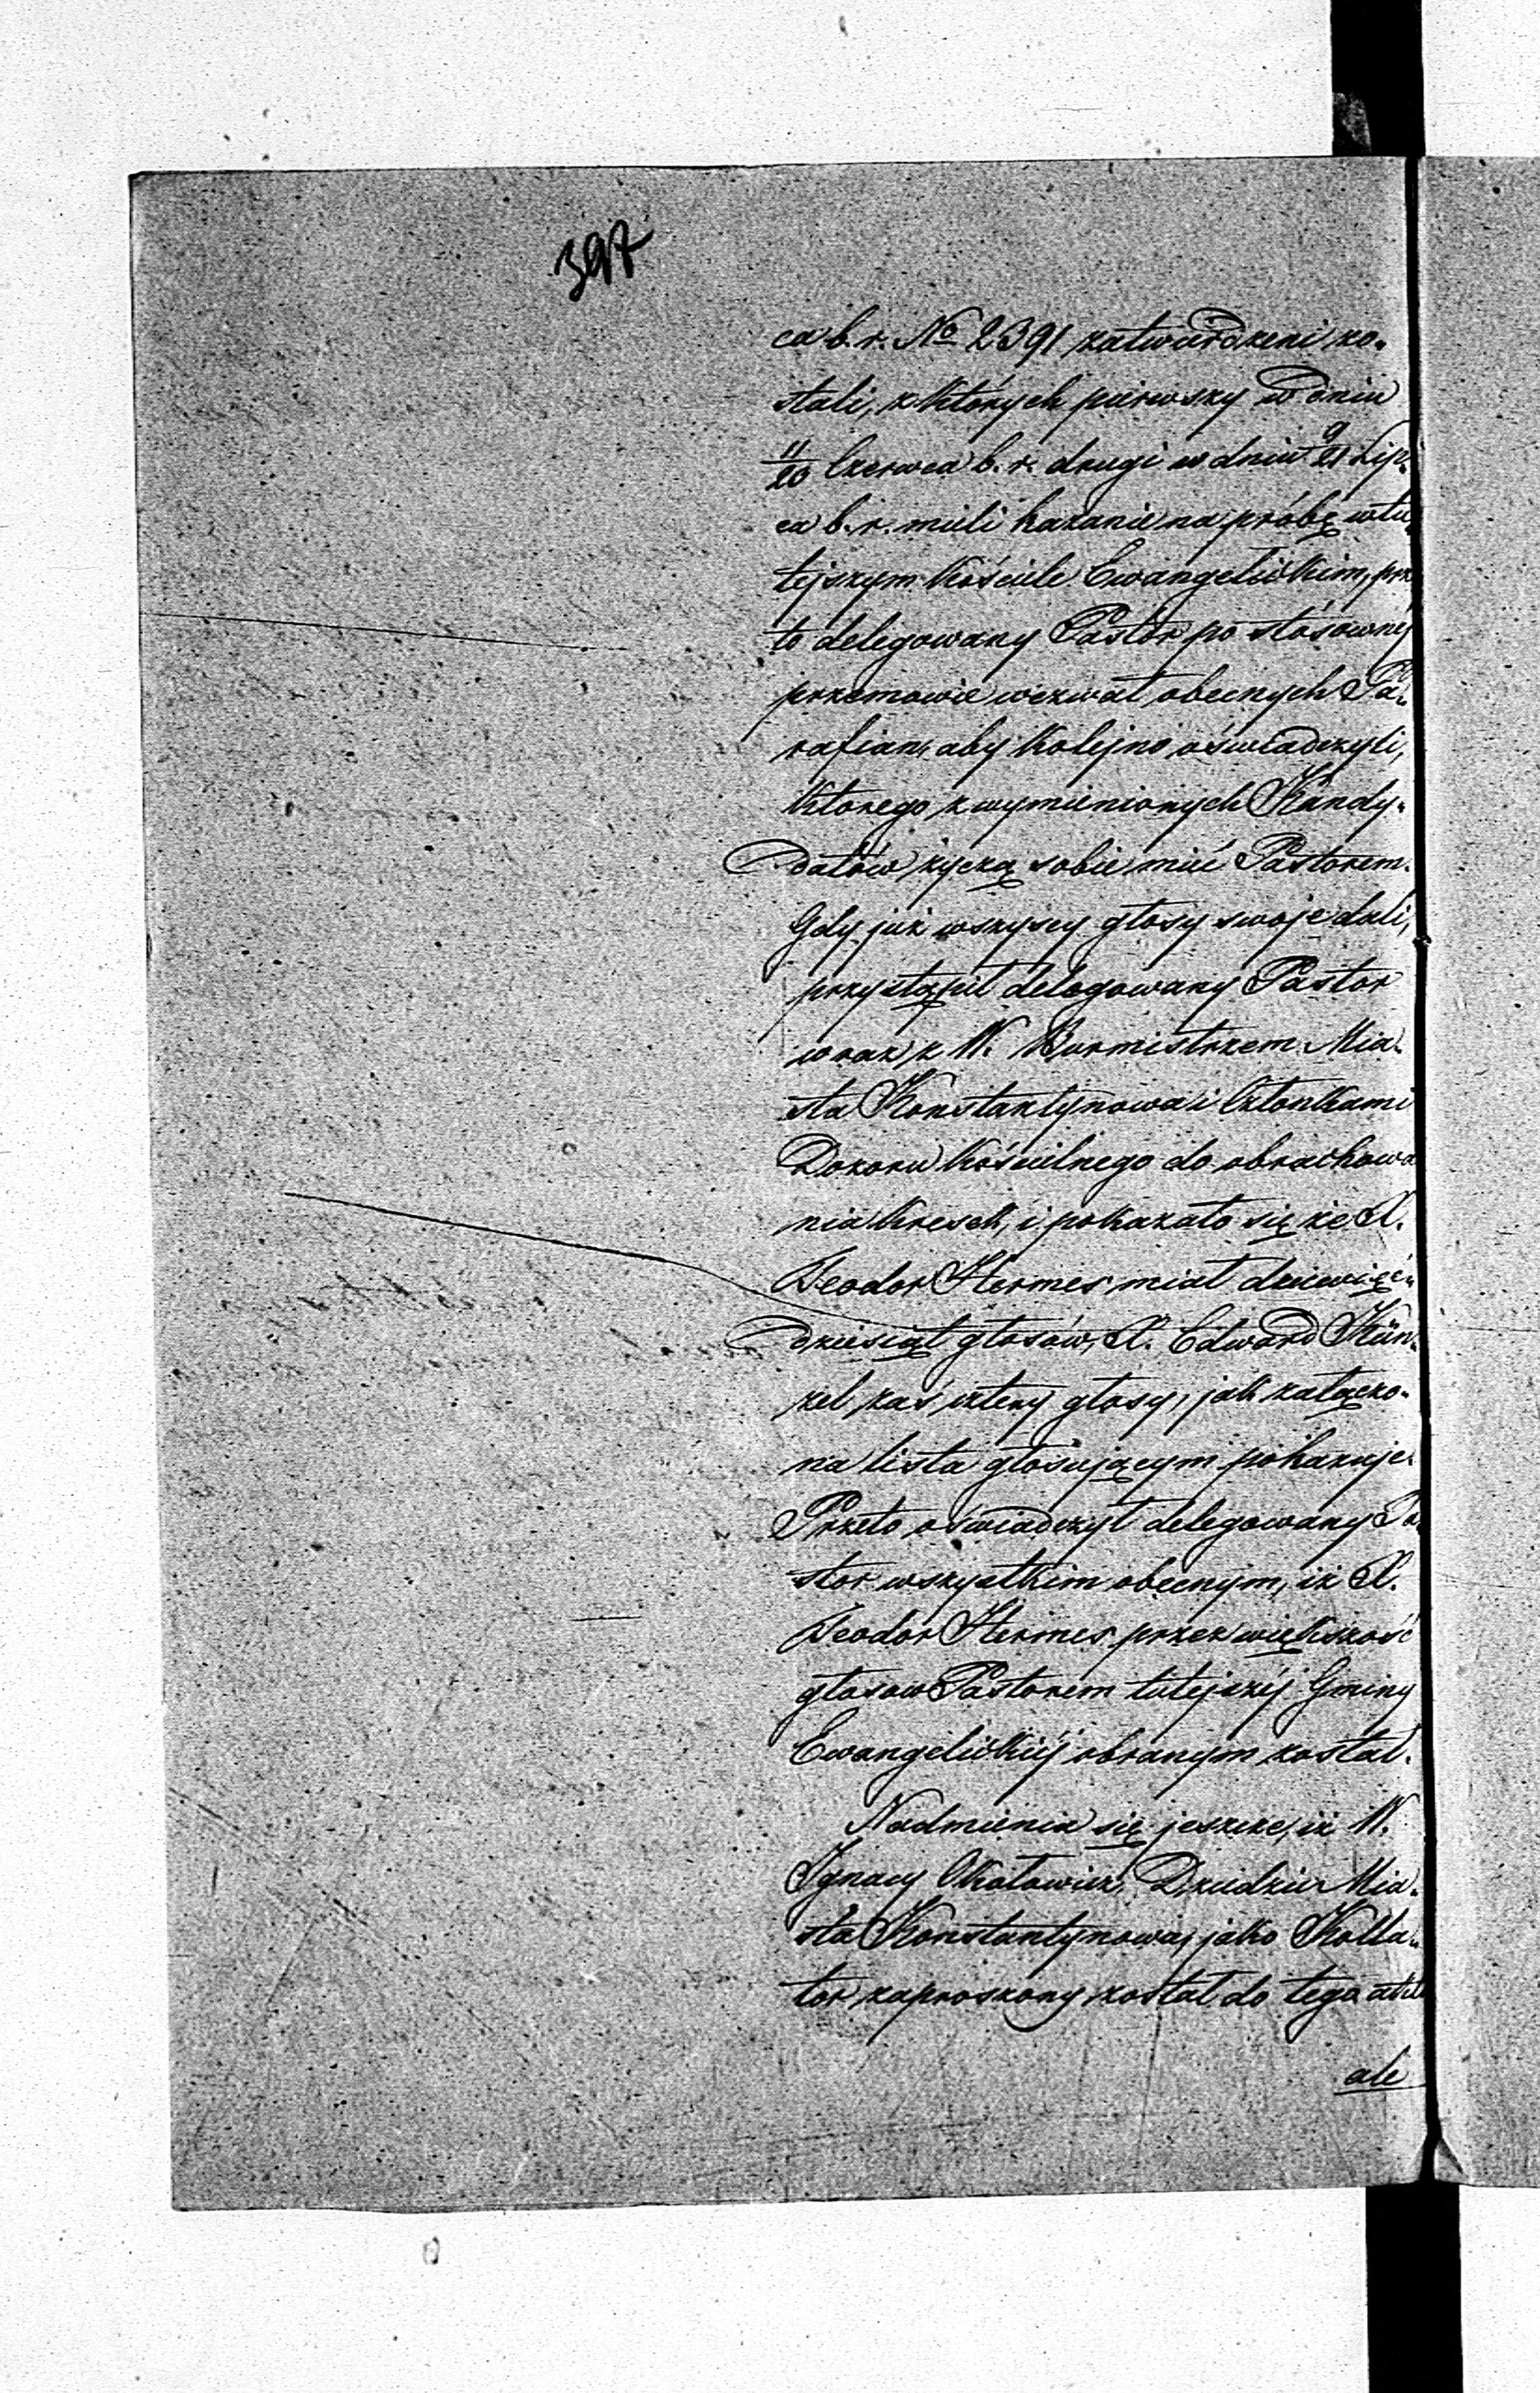 397
ca b. r. No 2391 zatwierdzeni zo-
stali, z których pierwszy w dniu
11/23 Czerwca b. r. drugi w dniu 9/21 Lip-
ca b. r. mieli kazanie na próbę w tu-
tejszym kościele Ewangelickim, prze
to delegowany Pastor po stósownej
przemowie wezwał obecnych Pa-
rafian, aby kolejno oświadczyli,
którego z wymienionych Kandy-
datów życzą sobie mieć Pastorem.
Gdy już wszyscy głosy swoje dali,
przystąpił delegowany Pastor
wraz z W. Burmistrzem Mia-
sta Konstantynowa i Członkami
Dozoru kościelnego do obrachowa
nia kresek, i pokazało się że X.
Teodor Hermes miał dziewięć-
dziesiąt głosów, X. Edward Kün-
zel zaś cztery głosy, jak załączo-
na lista głosującym pokazuje.
Przeto oświadczył delegowany Pa-
stor wszystkim obecnym, iż X.
Teodor Hermes przez większość
głosow Pastorem tutejszéj Gminy
Ewangelickiéj obranym został.
Nadmienia się jeszcze, iż W.
Ignacy Okołowicz, Dziedzic Mia-
sta Konstantynowa, jako Kolla-
tor zaproszony został do tego aktu
ale